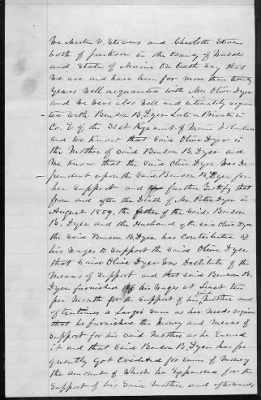 We Merlin V. Stevens and Charlotte Stevens
both of Jackson in the County of Waldo
and State of Maine On Oath Say that
We are and have been for more than twenty
years Well acquainted with Mrs Olive Dyer
and We were also Well and intimately acquain
ted with Benson B, Dyer Late a Private in
Co. E of the 31st Regiment of Maine Volunteers
and do know that Said Olive Dyer is
the Mother of Said Benson B. Dyer and
We know that the Said Olive Dyer was de
pendent upon the Said Benson B, Dyer for
her Support and further Testify that
from and after the Death of Mr. Peter Dyer in
August 1859, the father of the Said Benson
B, Dyer and the Husband of the Said Olive Dyer
the Said Benson B, Dyer has Contributed of
his Wages to Support the Said Olive Dyer
that Said Olive Dyer Was Destitute of the
Means of Support and that Said Benson B,
Dyer furnished of his Wages at Least
per Month for the Support of his Said Mother and
oftentimes a Larger Sum as her needs required
that he furnished the Money and Means of
Support for his Said Mother as he Earned
it and that Said Benson B, Dyer has fre
quently Got Credited for Sums of Money
the amount of Which he Expended for the
Support of his Said Mother and afterwards